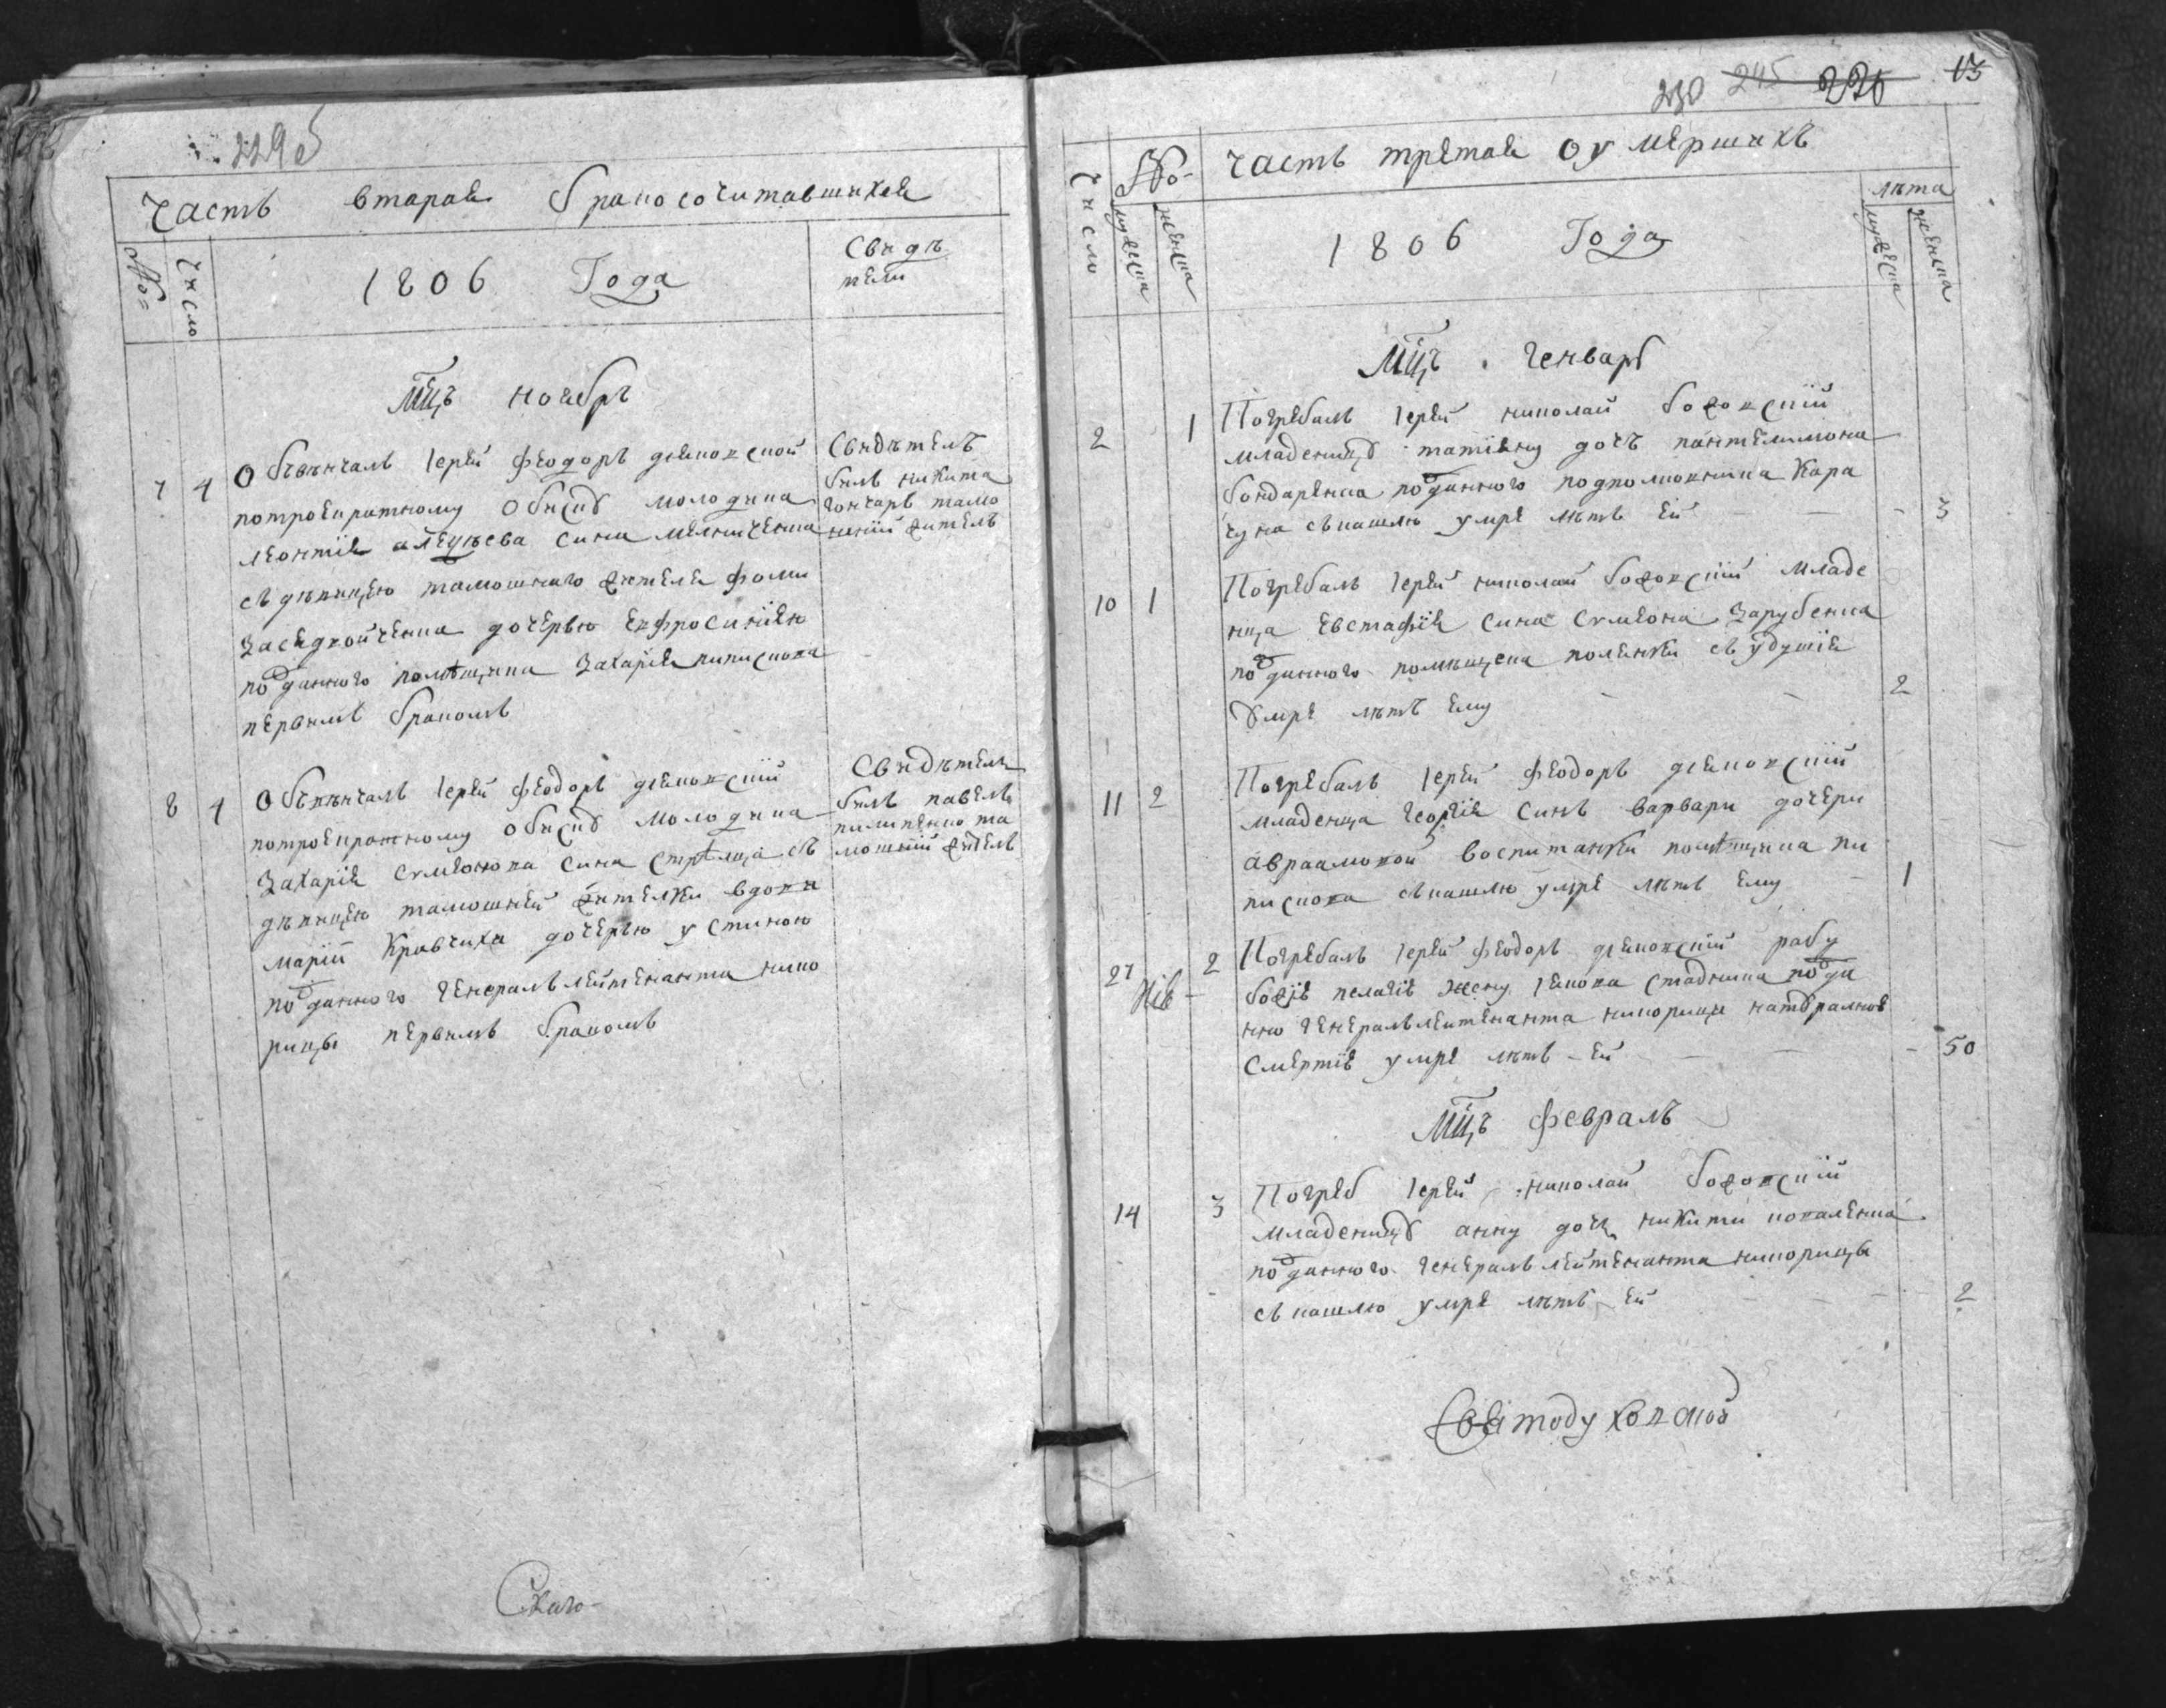 229 об
Часть вторая бракосочитавшихся
№ Число
1806 Года
Свидѣ
тели
Мцъ ноябрь
7 4 Обвѣнчалъ Іерей Феодоръ дяковской
потроекратному Обиску молодика
леонтія алеѯѣева сина мелниченка
съ дѣвицею тамошнаго жителя фоми
дочерью Евфросиніею
подданного помѣщика Захарія пипискова
первимъ бракомъ
Свидѣтель
билъ никита
гончаръ тамо
шній житель
8 4 Обвѣнчалъ Іерей Феодоръ дяковскій
потроекратному обиску молодика
Захарія сумеонова сина стрѣлца съ
дѣвицею тамошней жителки вдови
маріи Кравчихи дочерью устиною
подданного Генералъ лейтенанта кико
рици первимъ бракомъ
Свидѣтель
билъ павелъ
пилипенко та
мошній житель
230 245 220 13
Часть третая о умершихъ
Число
№
мужеска
женска
1806 Года
лѣта
мужеска
женска
Мцъ Генварь
2 1 Погребалъ Іерей николай божовскій
младеницу татіяну дочъ пантелимона
бондаренка подданного подполковника Кара
чуна съ кашлю умре лѣтъ Ей 3
10 1 Погребалъ Іерей николай божовскій младе
нца Евстафія сина сумеона Зарубенка
подданного помѣщека съ удушія
умре лѣтъ Ему 2
11 2 Погребалъ Іерей Феодоръ дяковскій
младенца Георгія синъ варвари дочери
авраамовой воспитанки помѣщика пи
пискова съ кашлю умре лѣтъ Ему 1
27 2 Погребалъ Іерей Феодоръ дяковскій рабу
божію пелагію жену Іакова стадника подда
нно Генералъ лейтенанта кикорици натуралною
смертію умре лѣтъ Ей 50
Мцъ февраль
14 3 Погреб Іерей николай божовскій
младеницу анну дочъ никити коваленка
подданного Генералъ лейтенанта кикорици
съ кашлю умре лѣтъ Ей 2
Святодуховской